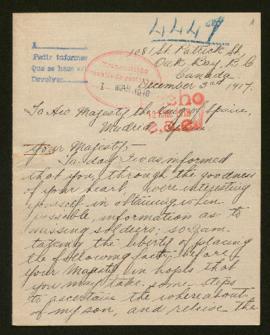 4449
A
Pedir informes
Que se haga
Devolver
1081 St Patrick St,
Oak Bay, B.C
Canada
December 3rd 1917.
To His Majesty the King of Spain,
Madrid,
Your Majesty,
To-day I was informed
that you, through the goodness
of your heart, were interesting
yourself in obtaining when
possible, information as to
missing soldiers; so I am
taking the liberty of placing
the following facts before
your Majesty in hopes that
you may take some steps
to ascertain the whereabouts
of my son, and relieve the